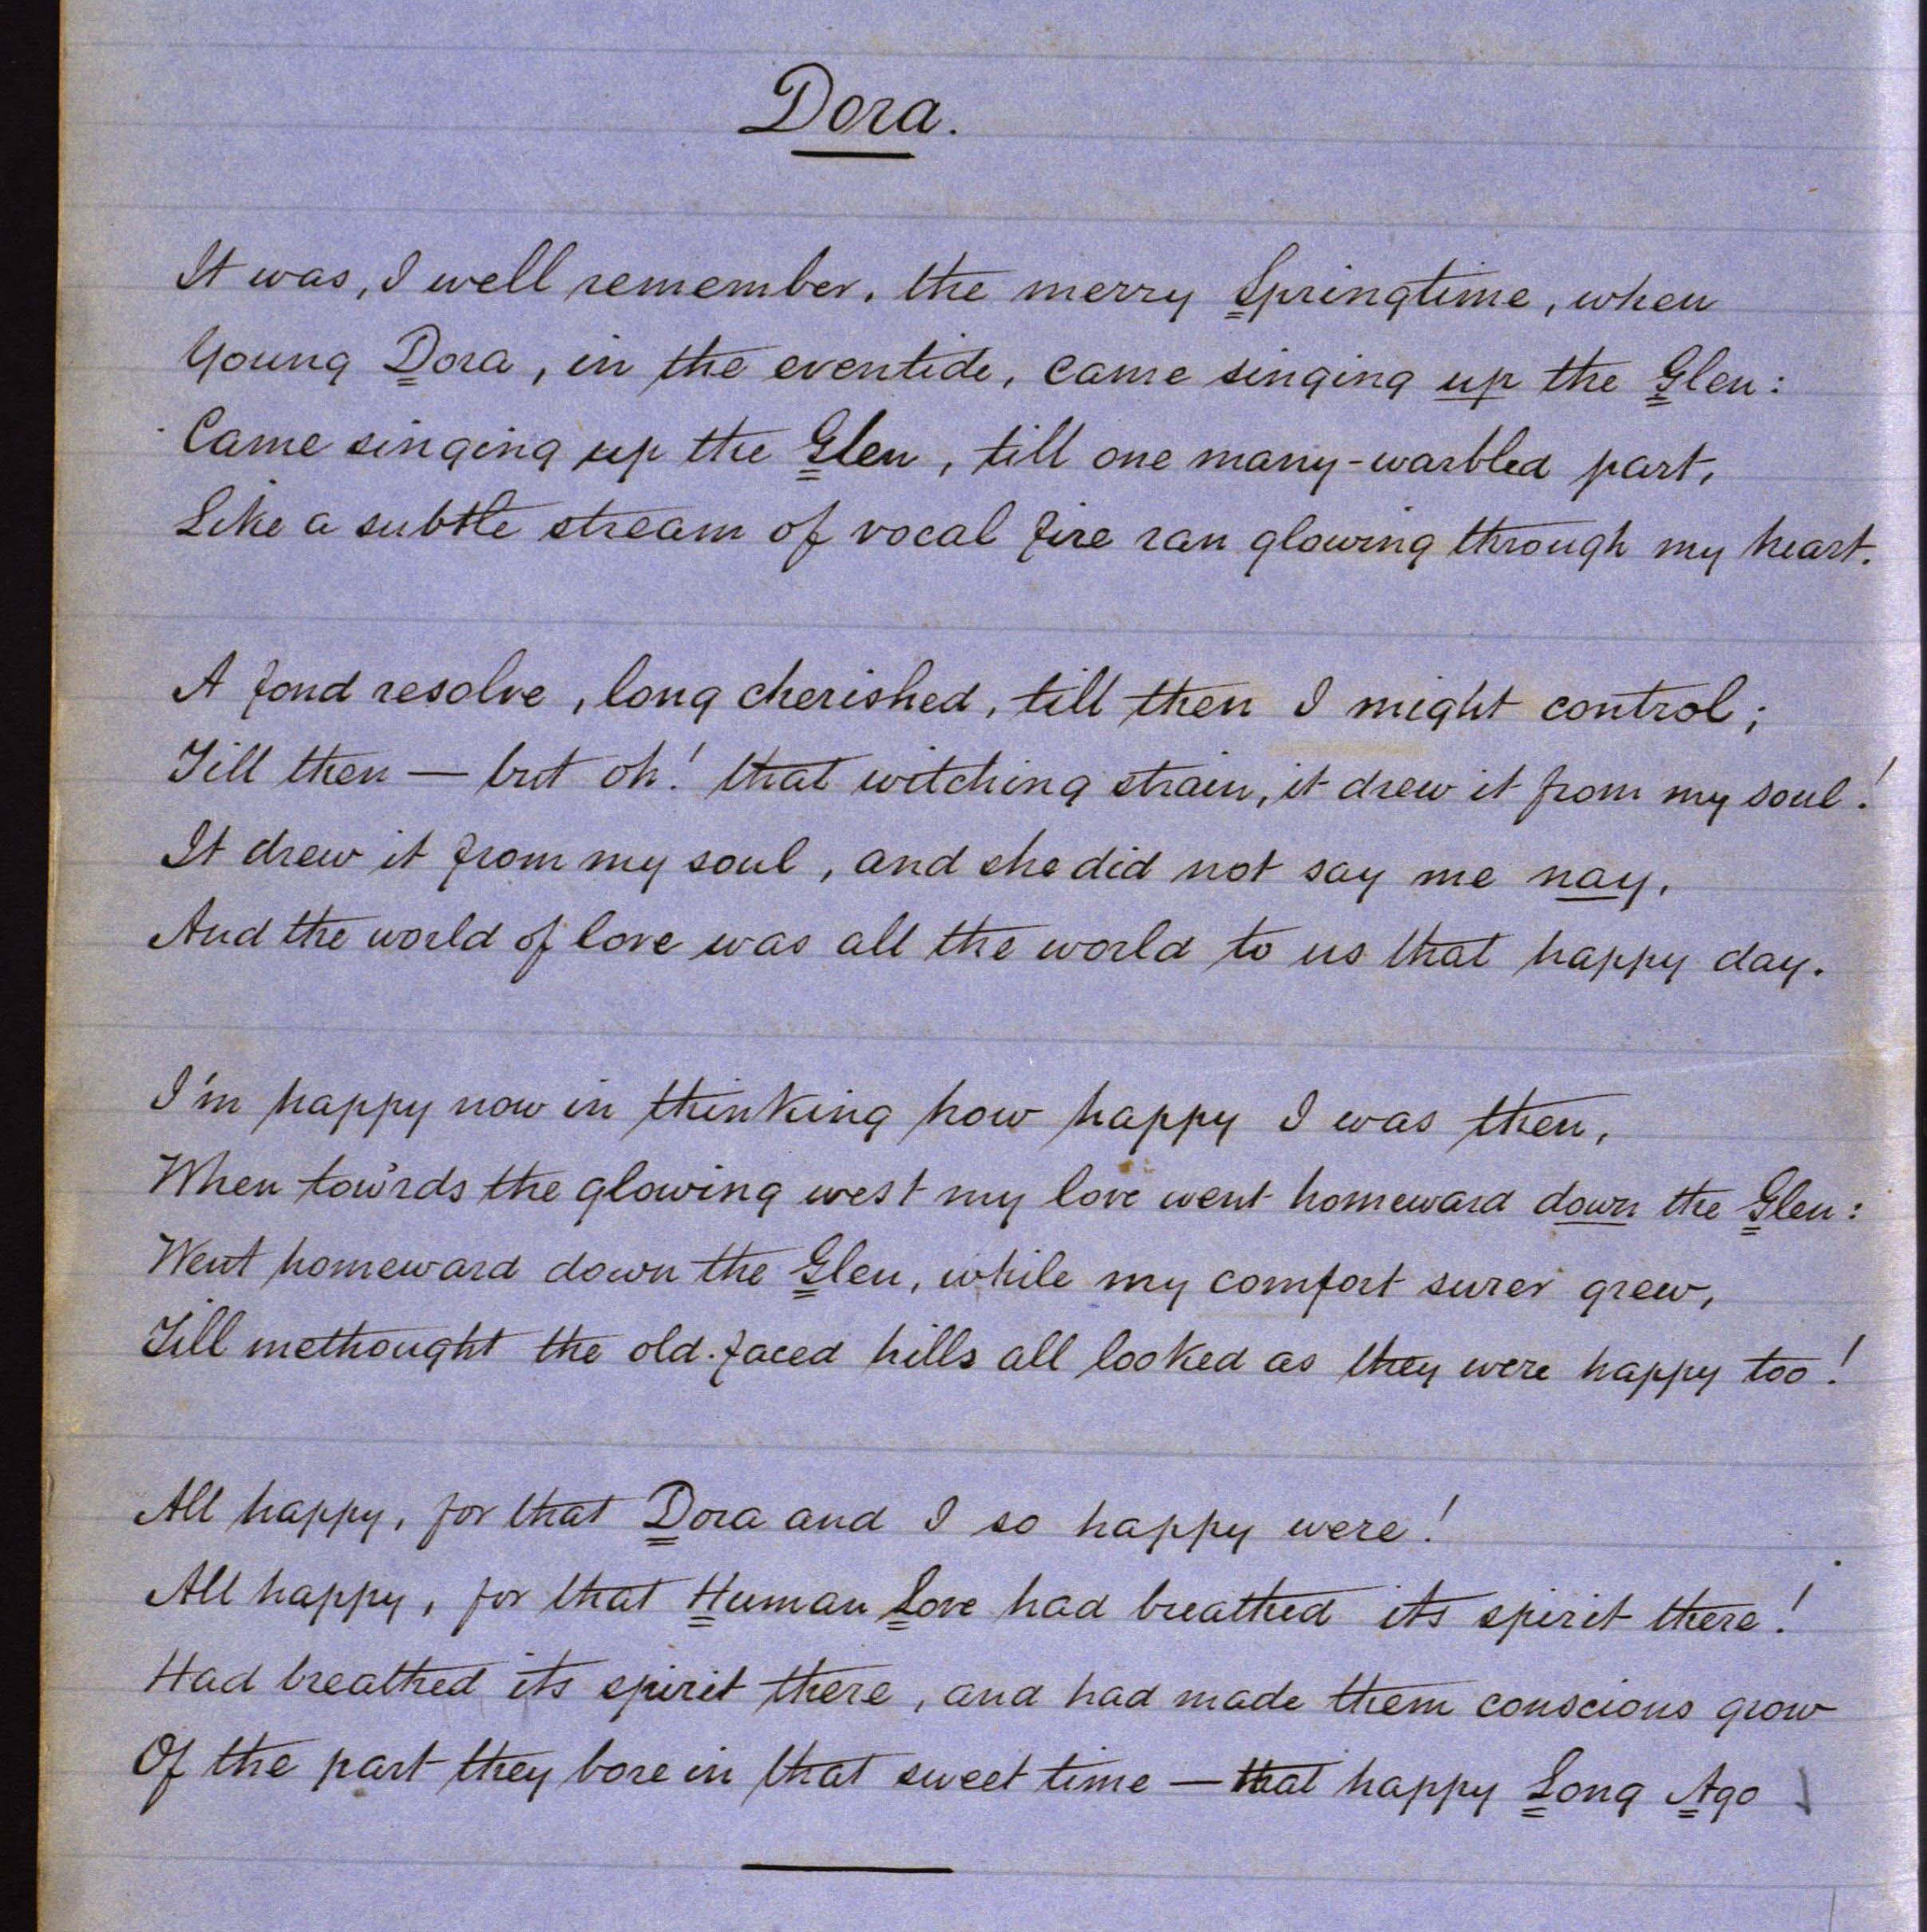 Dora.
It was, I well remember, the merry Springtime, when
Young Dora, in the eventide, came singing up the Glen:
Came singing up the Glen, till one many-warbled part,
Like a subtle stream of vocal fire ran glowing through my heart.
A fond resolve, long cherished, till then I might control;
Till then — but oh! that witching strain, it drew it from my soul!
It drew it from my soul, and she did not say me nay,
And the world of love was all the world to us that happy day.
I'm happy now in thinking how happy I was then,
When tow'rds the glowing west my love went homeward down the Glen:
Went homeward down the Glen, while my comfort surer grew,
Till methought the old-faced hills all looked as they were happy too!
All happy, for that Dora and I so happy were!
All happy, for that Human Love had breathed its spirit there!
Had breathed its spirit there, and had made them conscious grow
Of the part they bore in that sweet time — that happy Long Ago